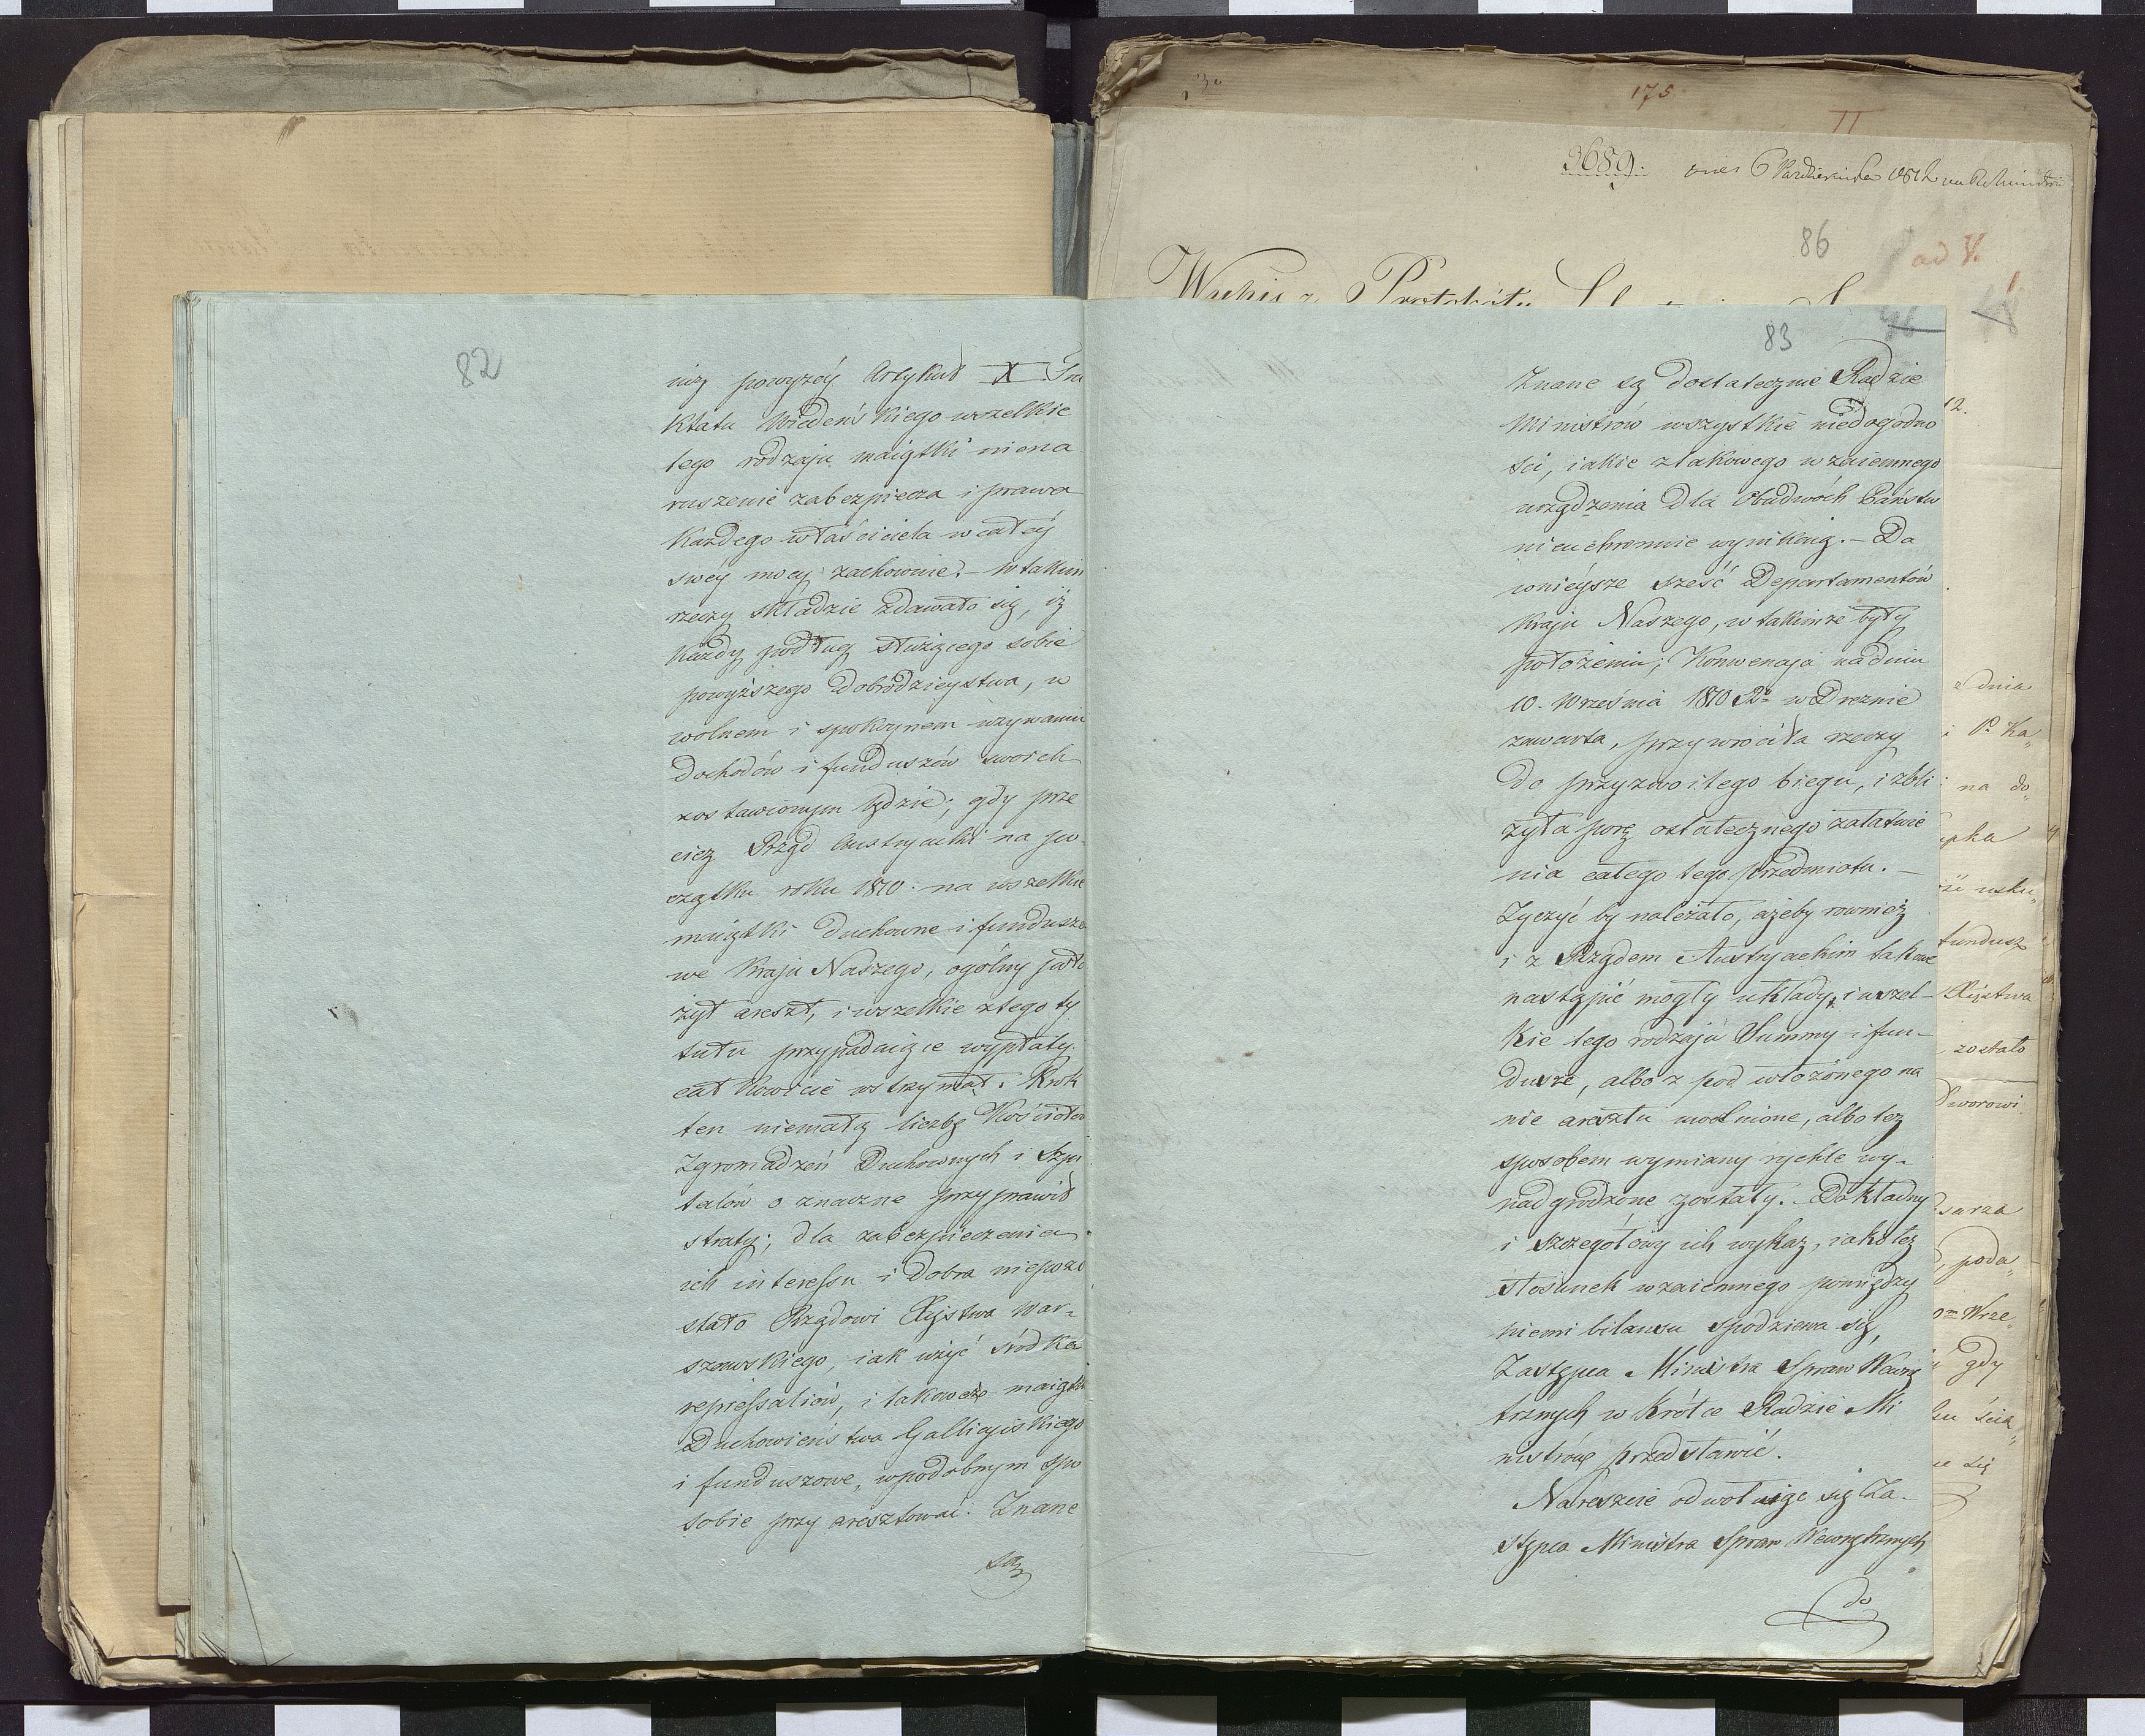 82
iuż powyżéy Artykuł X Tra
ktatu Wiedeńskiego wszelkie
tego rodzaju maiątki niena
ruszenie zabezpiecza i prawa
Każdego właściciela w całéy
swéy mocy zachowuie. – W takim
rzeczy składzie zdawało się, iż
każdy podług służącego sobie
powyższego Dobrodzieystwa, w
wolnem i spokoynem używaniu
Dochodów i funduszów swoich
zostawionym będzie; gdy prze
cież Rząd Austryacki na po
czątku roku 1810. na wszelkie
maiątki Duchowne i fundusze
we Kraju Naszego, ogólny poło
żył areszt, i wszelkie z tego ty
tułu przypadaiące wypłaty
całkowicie wstrzymał. Krok
ten niemałą liczbę Kościołów
Zgromadzeń Duchownych i Szpi
talów o znaczne przyprawił
straty; dla zabezpieczenia
ich interessu i Dobra niepozo
stało Rządowi Xięstwa War-
szawskiego, iak użyć środka
repressaliów, i takoweż maiątki
Duchowieństwa Galliciyskiego
i funduszowe, w podobnym spo
sobie przyaresztować. Znane
są
175
II
3689.
86
ad V.
Wypis z Protokółu
83
Znane są dostatecznie Radzie
Ministrów wszystkie niedogodno
ści, iakie z takowego wzaiemnego
urządzenia dla Obudwóch Państw
nieuchronnie wynikaią. – Da
wnieysze sześć Departamentów
Kraju Naszego, w takimże były
położeniu; Konwencja na dniu
10. Września 1810 R. w Dreznie
zawarta, przywróciła rzeczy
do przyzwoitego biegu, i zbli
żyła porę ostatecznego załatwie
nia całego tego przedmiotu. –
Życzyć by należało, ażeby również
i z Rządem Austryackim takowe
nastąpić mogły układy, i wszel-
kie tego rodzaju Summy i fun-
dusze, albo z pod włożonego na
nie aresztu uwolnione, albo też
sposobem wymiany rychle wy-
nadgrodzone zostały. – Dokładny
i szczegółowy ich wykaz, iako też
stosunek wzaiemnego pomiędzy
niemi bilansu spodziewa się,
Zastępca Ministra Spraw Wewnę
trznych w krótce Radzie Mi
nistrów przedstawić.
Nareszcie odwołuiąc się Za-
stępca Ministra Spraw Wewnętrznych
do
12.
z dnia
i P. Ka„
na do„
upka
usku„
fundusz
Xięstwa
zostało
Dworowi
sarza
poda„
Wrze„
gdy
ścia„
się